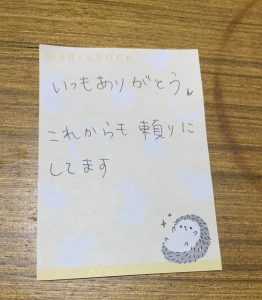 HARI&DUCK
いつもありがとう
これからも頼りに
してます